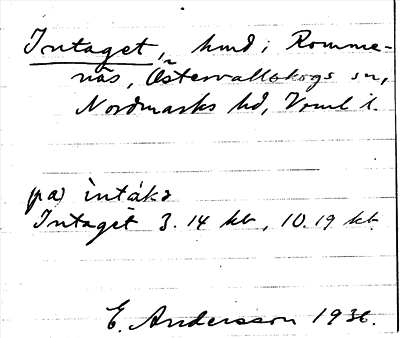 Intaget, hmd i Romme-
näs, Östervallskogs sn,
Nordmarks hd, Vrml l.
på) ìntákə
Intaget 3.14 kb, 10.19 kb.
E. Andersson 1936.